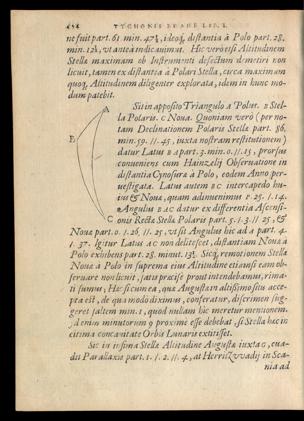 TYCHONIS BRAHE LIB. I.
ne fuit part. 61. min. 47½, ideoq; distantia à Polo part. 28.
min. 12½, vt anteà indicauimus. Hic verò etsi Altitudinem
Stella maximam ob Instrumenti defectum demetiri non
licuit, tamen ex distantia à Polari Stella, circa maximam
quoq; Altitudinem diligenter explorata, idem in hunc mo-
dum patebit.
A
B
C
Sit in apposito Triangulo A Polus. B Stel-
la Polaris. C Noua. Quoniam verò (per no-
tam Declinationem Polaris Stellæ part. 86.
min. 59. //. 45. iuxta nostram restitutionem)
datur Latus B A part. 3. min. 0. //. 15. prorsus
conueniens cum Hainzelij Obseruatione in
distantia Cynosuræ à Polo, eodem Anno per-
uestigata. Latus autem B C intercapedo hu-
ius & Noua, quam adinuenimus P. 25. /. 14.
Angulus B A C datur ex differentia Ascensi-
onis Recta Stella Polaris part. 5. /. 3. // 25, &
Noua part. 0. /. 26. //. 25, vt sit Angulus hic ad A part. 4.
/. 37. Igitur Latus A C non delitescet, distantiam Noua à
Polo exhibens part. 28. minut. 13⅓. Sicq; remotionem Stella
Noua à Polo in suprema eius Altitudine etiamsi eam ob-
seruare non licuit, satis præcisè prout intendebamus, rima-
ti sumus; Hæc si cum ea, quæ Augusta in altissimo situ acce-
pta est, de qua modò diximus, conferatur, discrimen sug-
geret saltem min. 1, quod nullam hic meretur mentionem,
id enim minutorum 9 proximè esse debebat, si Stella hæc in
citima concauitate Orbis Lunaris extitisset.
Sic in infima Stellæ Altitudine Augusta iuxta C, eua-
dit Parallaxis part. 1. /. 2. //. 4, at Herritzwadij in Sca-
nia ad